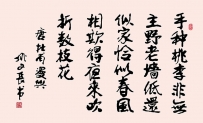 手种桃李非无
主野老墙低还
似家恰似春风
相欺得夜来吹
折数枝花
唐杜甫漫兴